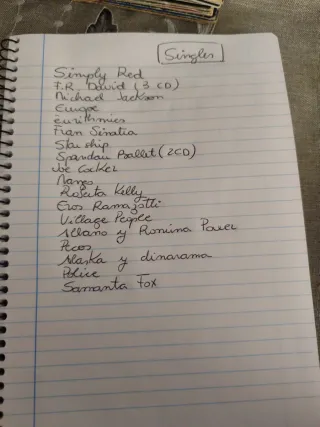 Singles
Simply Red
F.R. David (3 CD)
Michael Jackson
Europe
eurithmics
Fran Sinatia
Starship
Spandau Ballet (2CD)
Joe Cocker
Roberta Kelly
Eros Ramazotti
Village People
Albano y Romina Power
Pecos
Alaska y dinarama
Police
Samanta Fox